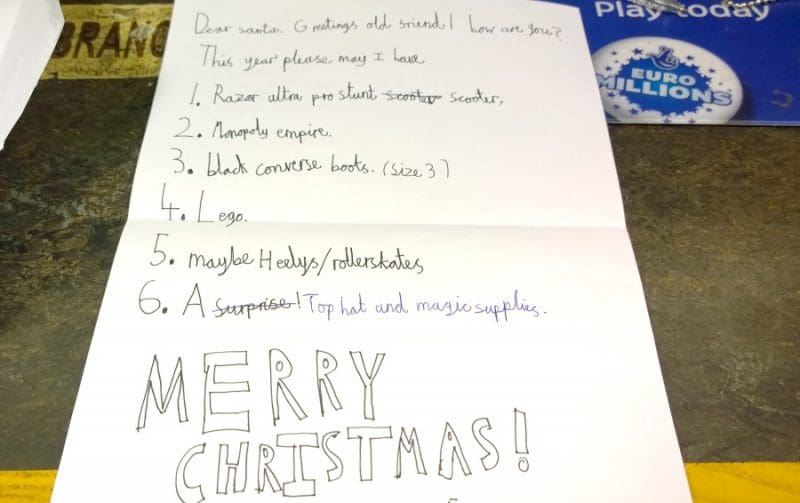 BRAND
Play today
EURO
MILLIONS
Dear santa. Greetings old sriend! how are you?
This year please may I have
1. Razor ultra pro stunt scooter scooter,
2. Monopoly empire.
3. black converse boots. (size 3)
4. Lego.
5. maybe Heelys/rollerskates
6. A surprise! Top hat and magic supplies.
MERRY
CHRISTMAS!